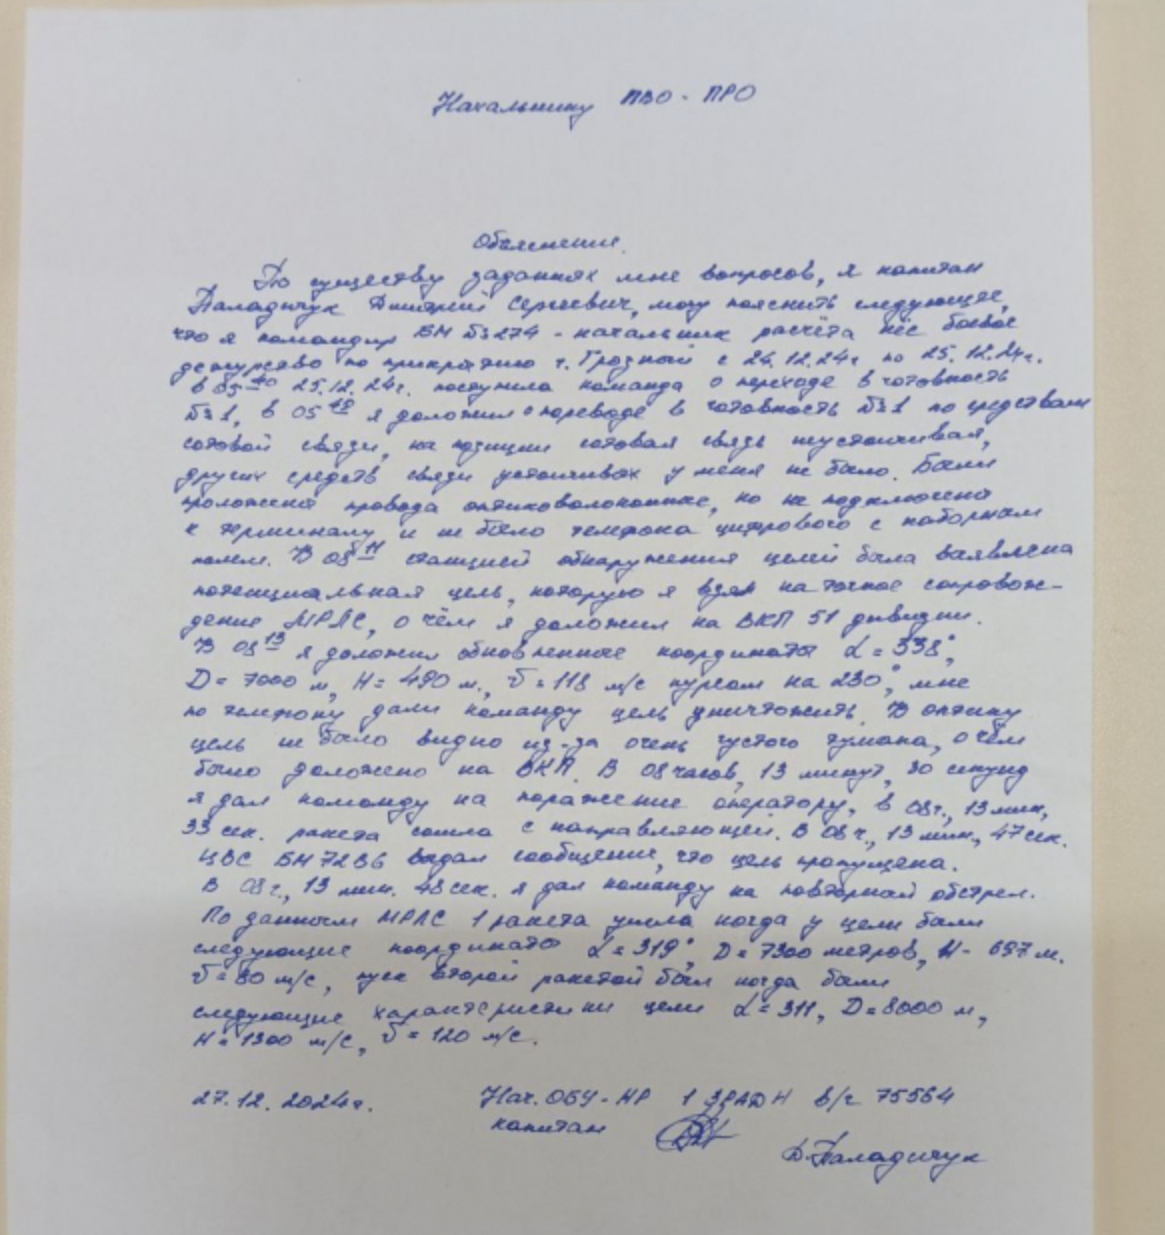 Начальнику ПВО - ПРО
Объяснение.
По существу заданных мне вопросов, я капитан
Паладичук Дмитрий Сергеевич, могу пояснить следующее,
что я командир БМ №274 - начальник расчёта нёс боевое
дежурство по прикрытию г. Грозный с 24.12.24г по 25.12.24г.
в 05 40 25.12.24г. поступила команда о переходе в готовность
№1, в 05 48 я доложил о переводе в готовность №1 по средствам
сотовой связи, на позиции сотовая связь неустойчивая,
других средств связи устойчивых у меня не было. Были
проложены провода оптиковолоконные, но не подключены
к терминалу и не было телефона цифрового с наборным
полем. В 08 11 станцией обнаружения целей была выявлена
потенциальная цель, которую я взял на точное сопровож-
дение МРЛС, о чём я доложил на ВКП 51 дивизии.
В 08 13 я доложил обновленные координаты α = 338°,
D = 7000 м, H = 490 м., v = 118 м/с курсом на 230°, мне
по телефону дали команду цель уничтожить. В оптику
цель не было видно из-за очень густого тумана, о чём
было доложено на ВКП. В 08 часов, 13 минут, 30 секунд
я дал команду на поражение оператору, в 08ч., 13 мин,
33 сек. ракета сошла с направляющей. В 08ч., 13 мин, 47 сек.
ЦВС БМ 72В6 выдал сообщение, что цель пропущена.
В 08ч., 13 мин. 48 сек. я дал команду на повторный обстрел.
По данным МРЛС 1 ракета ушла когда у цели были
следующие координаты α = 319°, D = 7300 метров, H - 697 м.
v = 80 м/с, пуск второй ракетой был когда были
следующие характеристики цели α = 311, D = 8000 м,
H = 1300 м/с, v = 120 м/с.
27.12.2024г. Нач. ОБУ - НР 1 ЗРАДН в/ч 75564
капитан
Д. Паладичук